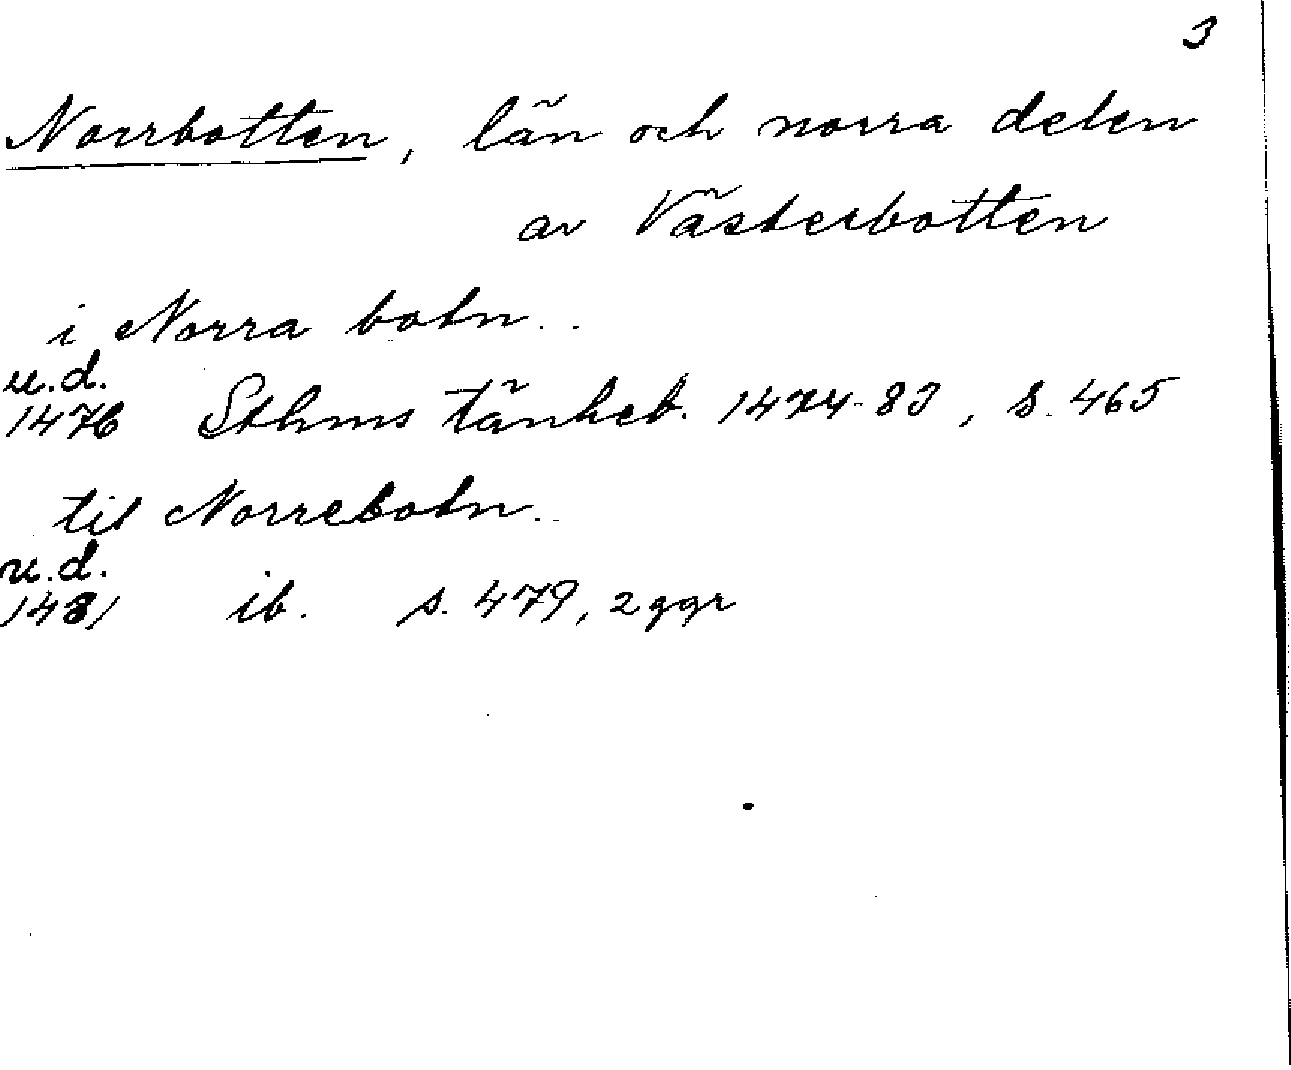 3
Norrbotten, län och norra delen
av Västerbotten
i Norra botn..
u.d.
1476 Sthms tänkeb. 1474-83, s. 465
til Norrebotn..
u.d.
1481 ib. s. 479, 2 ggr